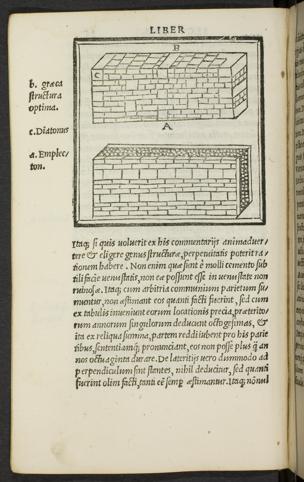 LIBER
b. græca
structura
optima.
c. Diatonus
a. Emplec-
ton.
B
C
A
Itaq; si quis voluerit ex his commentarijs animaduer-
tere & eligere genus structuræ, perpetuitatis poterit ra-
tionem habere. Non enim quæ sunt è molli cemento sub-
tili facie venustatis, non eæ possunt esse in vetustate non
ruinosæ. Itaq; cum arbitria communium parietum su-
muntur, non æstimant eos quanti facti fuerint, sed cum
ex tabulis inueniunt eorum locationis precia, præterito-
rum annorum singulorum deducunt octogesimas, &
ita ex reliqua summa, partem reddi iubent pro his parie
tibus, sententiamq; pronunciant, eos non posse plus q̃ an
nos octuaginta durare. De lateritijs vero dummodo ad
perpendiculum sint stantes, nihil deducitur, sed quanti
fuerint olim facti, tanti eẽ semp æstimantur. Itaq; nõnul